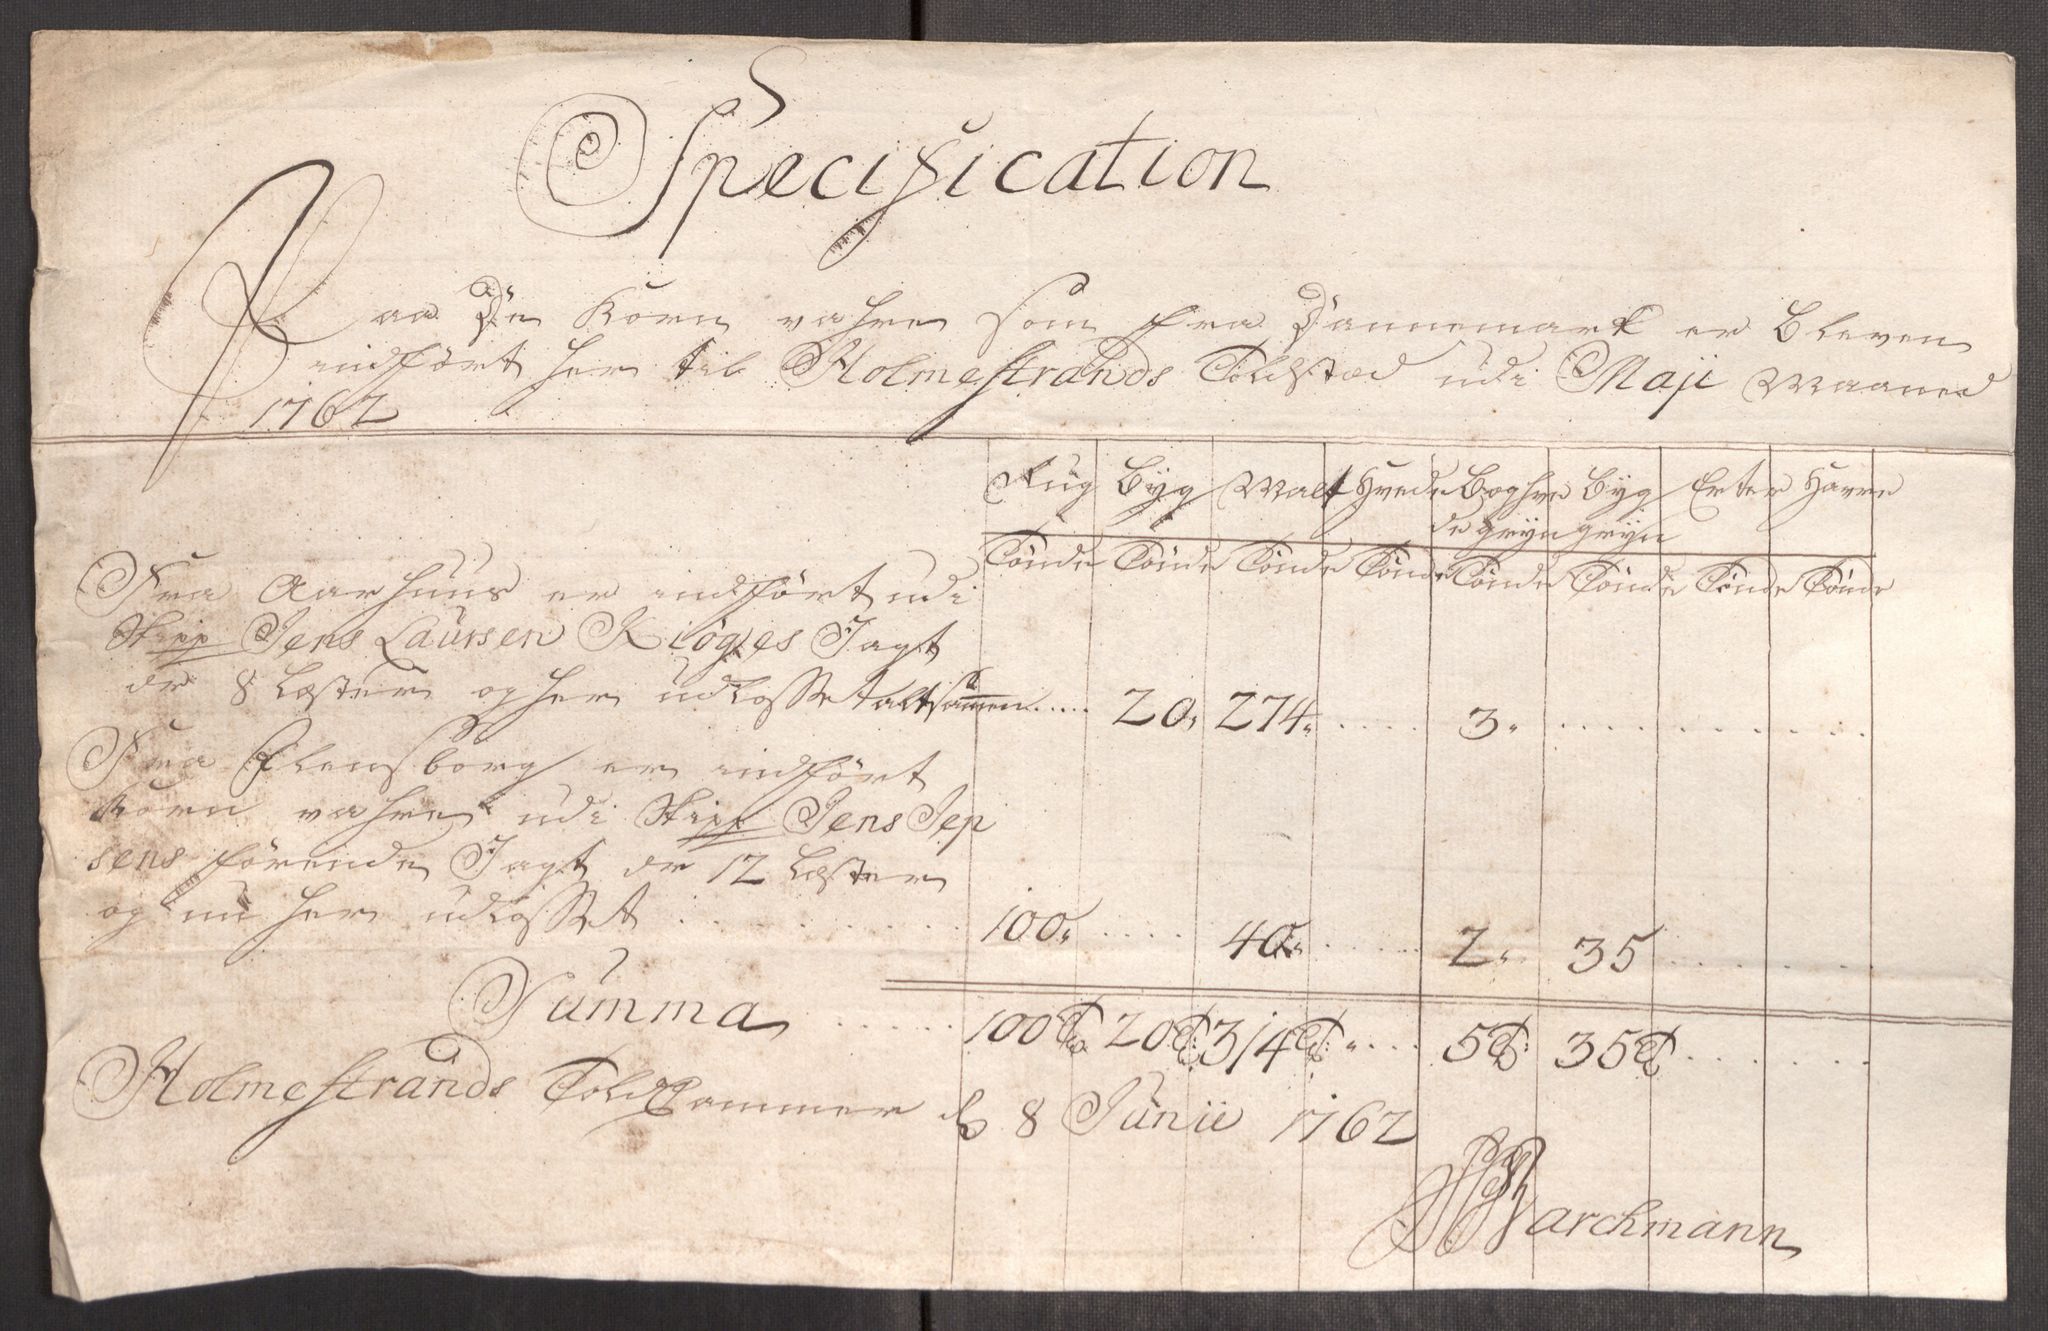 Specification
Paa De Korn vahre som fra Dannemark er bleven
indført her til Holmestrands Toldsted udi Maji Maaned
1762
Rug Byg Malt Hvede Boghve Byg Erter Havre
de gryn gryn
Tønde Tønde Tønde Tønde Tønde Tønde Tønde Tønde
Fra Aarhuus er indført udi
Skipp Jens Laursen Kiøges Jagt
dr 8 Læster og her udlosset altsammen ..... 20. 274. ..... 3. ..........
Fra Flensborg er indført
Korn vahre udi Skipp Jens Jep
sens førende Jagt dr 12 Læster
og nu her udlosset .......... 100. ..... 40. ..... 2. 35 ........
Summa ...... 100 T 20 T 314 T .... 5 T 35 T .......
Holmestrands Told Cammer d 8 Junii 1762
Barchmann